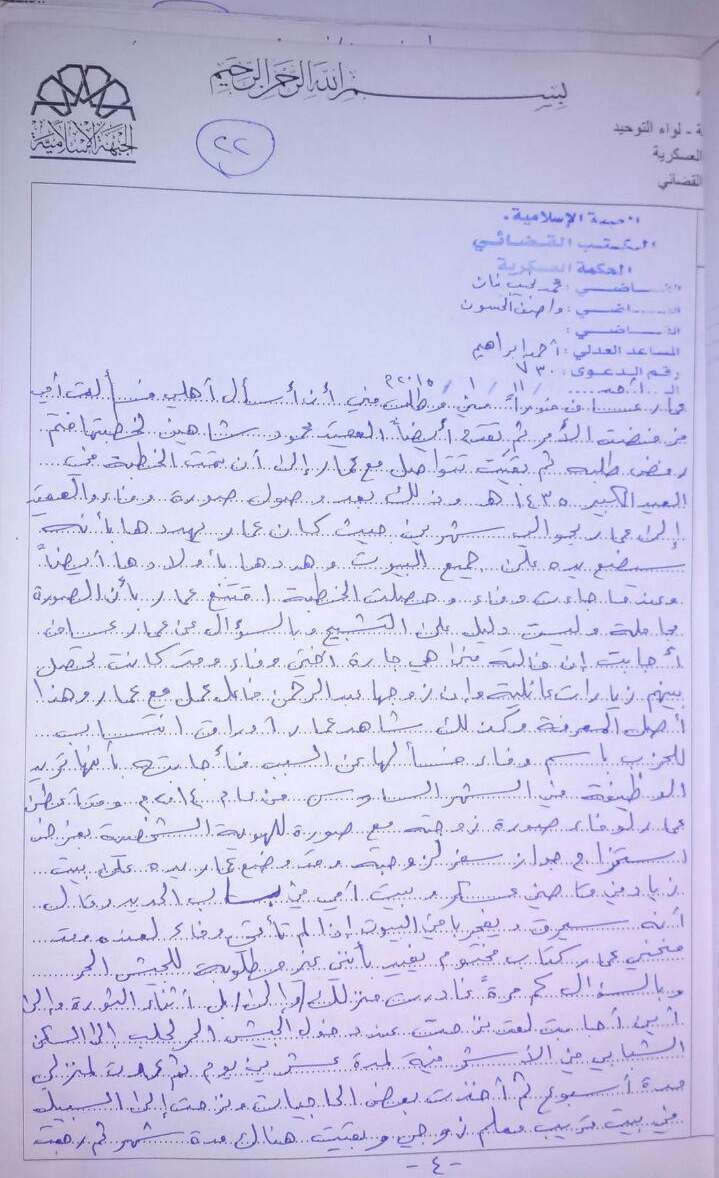 بسم الله الرحمن الرحيم
الجبهة الإسلامية
٢٢
ة - لواء التوحيد
العسكرية
القضائي
الإسلامية
المكتب القضائي
المحكمة العسكرية
القاضي: محمد نجيب بنان
القاضي: واصف الحسون
القاضي:
المساعد العدلي: أحمد ابراهيم
رقم الدعوى: ٧٣٠
الأحد / ١١ / ١ / ٢٠١٥م
عمار وطلب مني أن أسأل أهلي أمي
فرفضت الأمر ثم تقدم أيضاً العقيد محمود شاهين لخطبتها فتم
رفض طلبه ثم بقيت تتواصل مع عمار إلى أن تمت الخطبة في
العيد الكبير ١٤٣٥ هـ وذلك بعد وصول صورة وفاء والعقيد
إلى عمار بحوالي شهرين حيث كان عمار يهددها بأنه
سيضع يده على جميع البيوت وهددها بأولادها أيضاً
وعندما جاءت وفاء وحصلت الخطبة اقتنع عمار بأن الصورة
مجاملة وليست دليل على التشبيح وبالسؤال عن عمار
أجابت إن خالته هي جارة أختي وفاء وقد كانت تحصل
بينهم زيارات عائلية وإن زوجها عبد الرحمن عمل مع عمار وهذا
أصل المعرفة وكذلك شاهد عمار أوراق انتساب
للحزب باسم وفاء فسألها عن السبب فأجابته بأنها تريد
الوظيفة في الشهر السادس من عام ٢٠١٤م وقد أعطى
عمار لوفاء صورة زوجته مع صورة للهوية الشخصية بغرض
استخراج جواز سفر لزوجته وقد وضع عمار يده على بيت
زياد في قاضي عسكر وبيت أمي في باب الحديد وقال
أنه سيحرق ويفجر باقي البيوت إذا لم تأتي وفاء لعنده وقد
منحني عمار كتاب مختوم يفيد بأنني غير مطلوبة للجيش الحر
وبالسؤال كم مرة غادرت منزلك أثناء الثورة وإلى
أين أجابت لقد نزحت عند دخول الجيش الحر لحلب إلى السكن
الشبابي في الأشرفية لمدة عشرين يوم ثم عدت لمنزلي
مدة أسبوع ثم أخذت بعض الحاجيات ونزحت إلى السبيل
في بيت قريب معلم زوجي وبقيت هناك مدة شهر ثم رجعت
- ٤ -